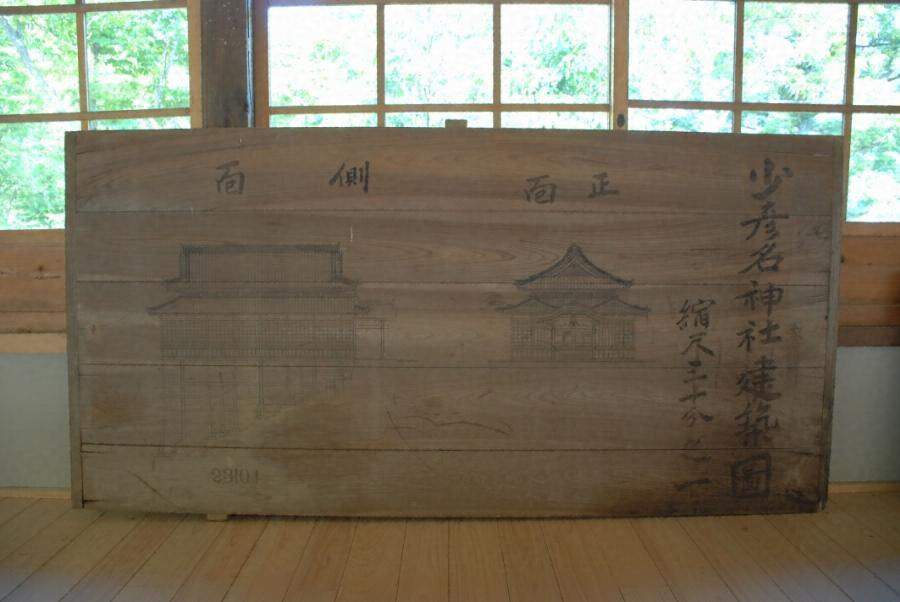 少彦名神社建築圖
縮尺三十分之一
正面
側面